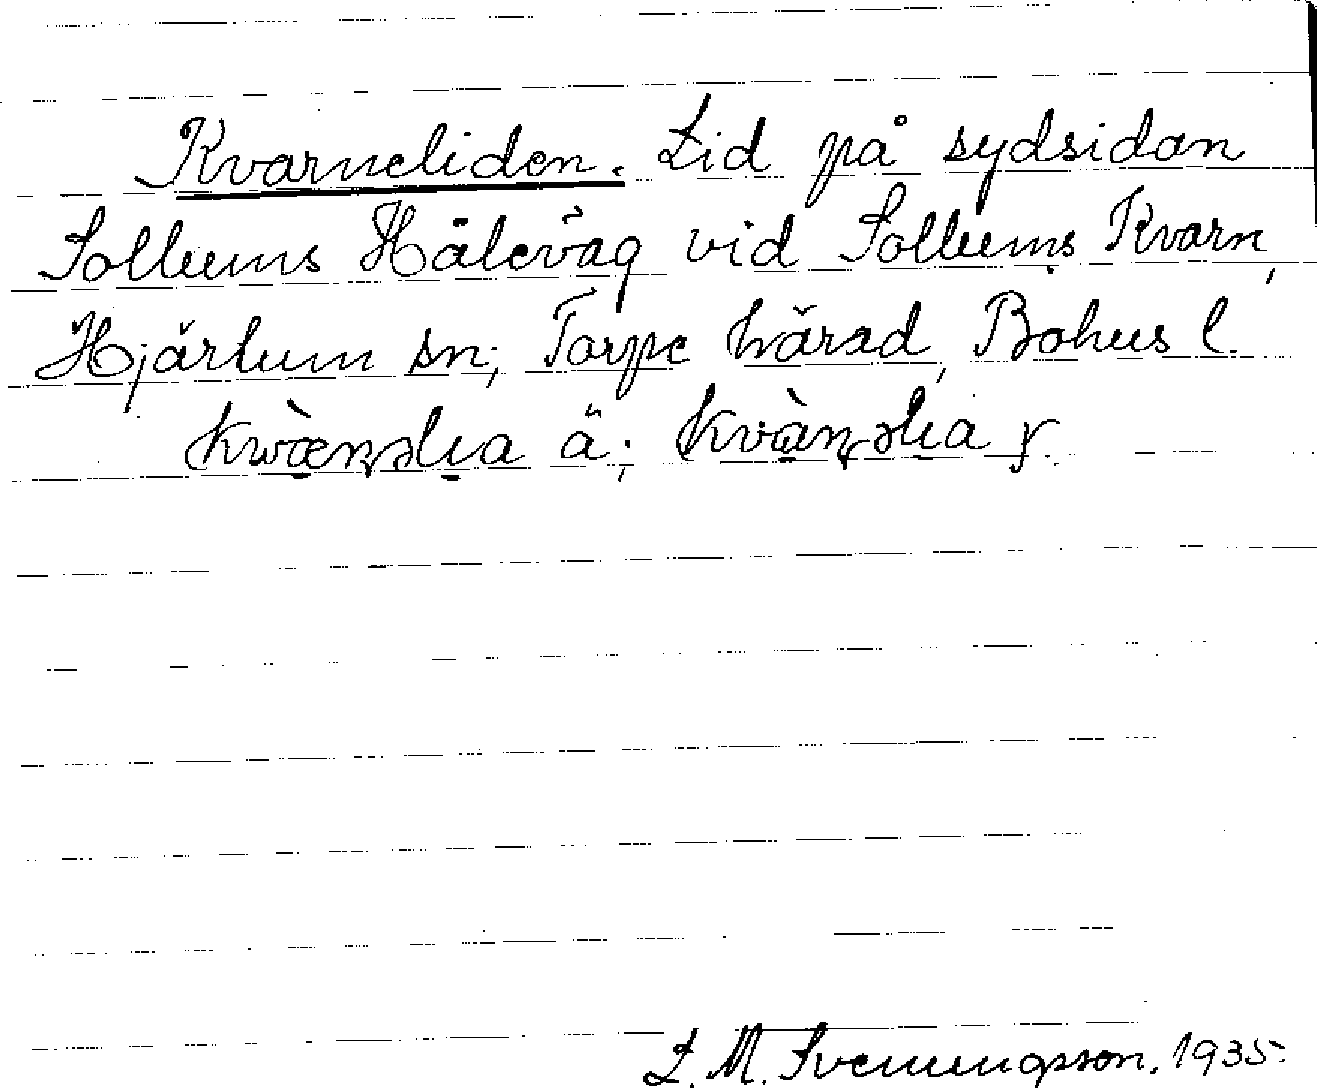 Kvarneliden. Lid på sydsidan
Sollums Hålevåg vid Sollums Kvarn,
Hjärtum sn; Torpe härad, Bohus l.
ä; y.
L. M. Svenungsson. 1935.